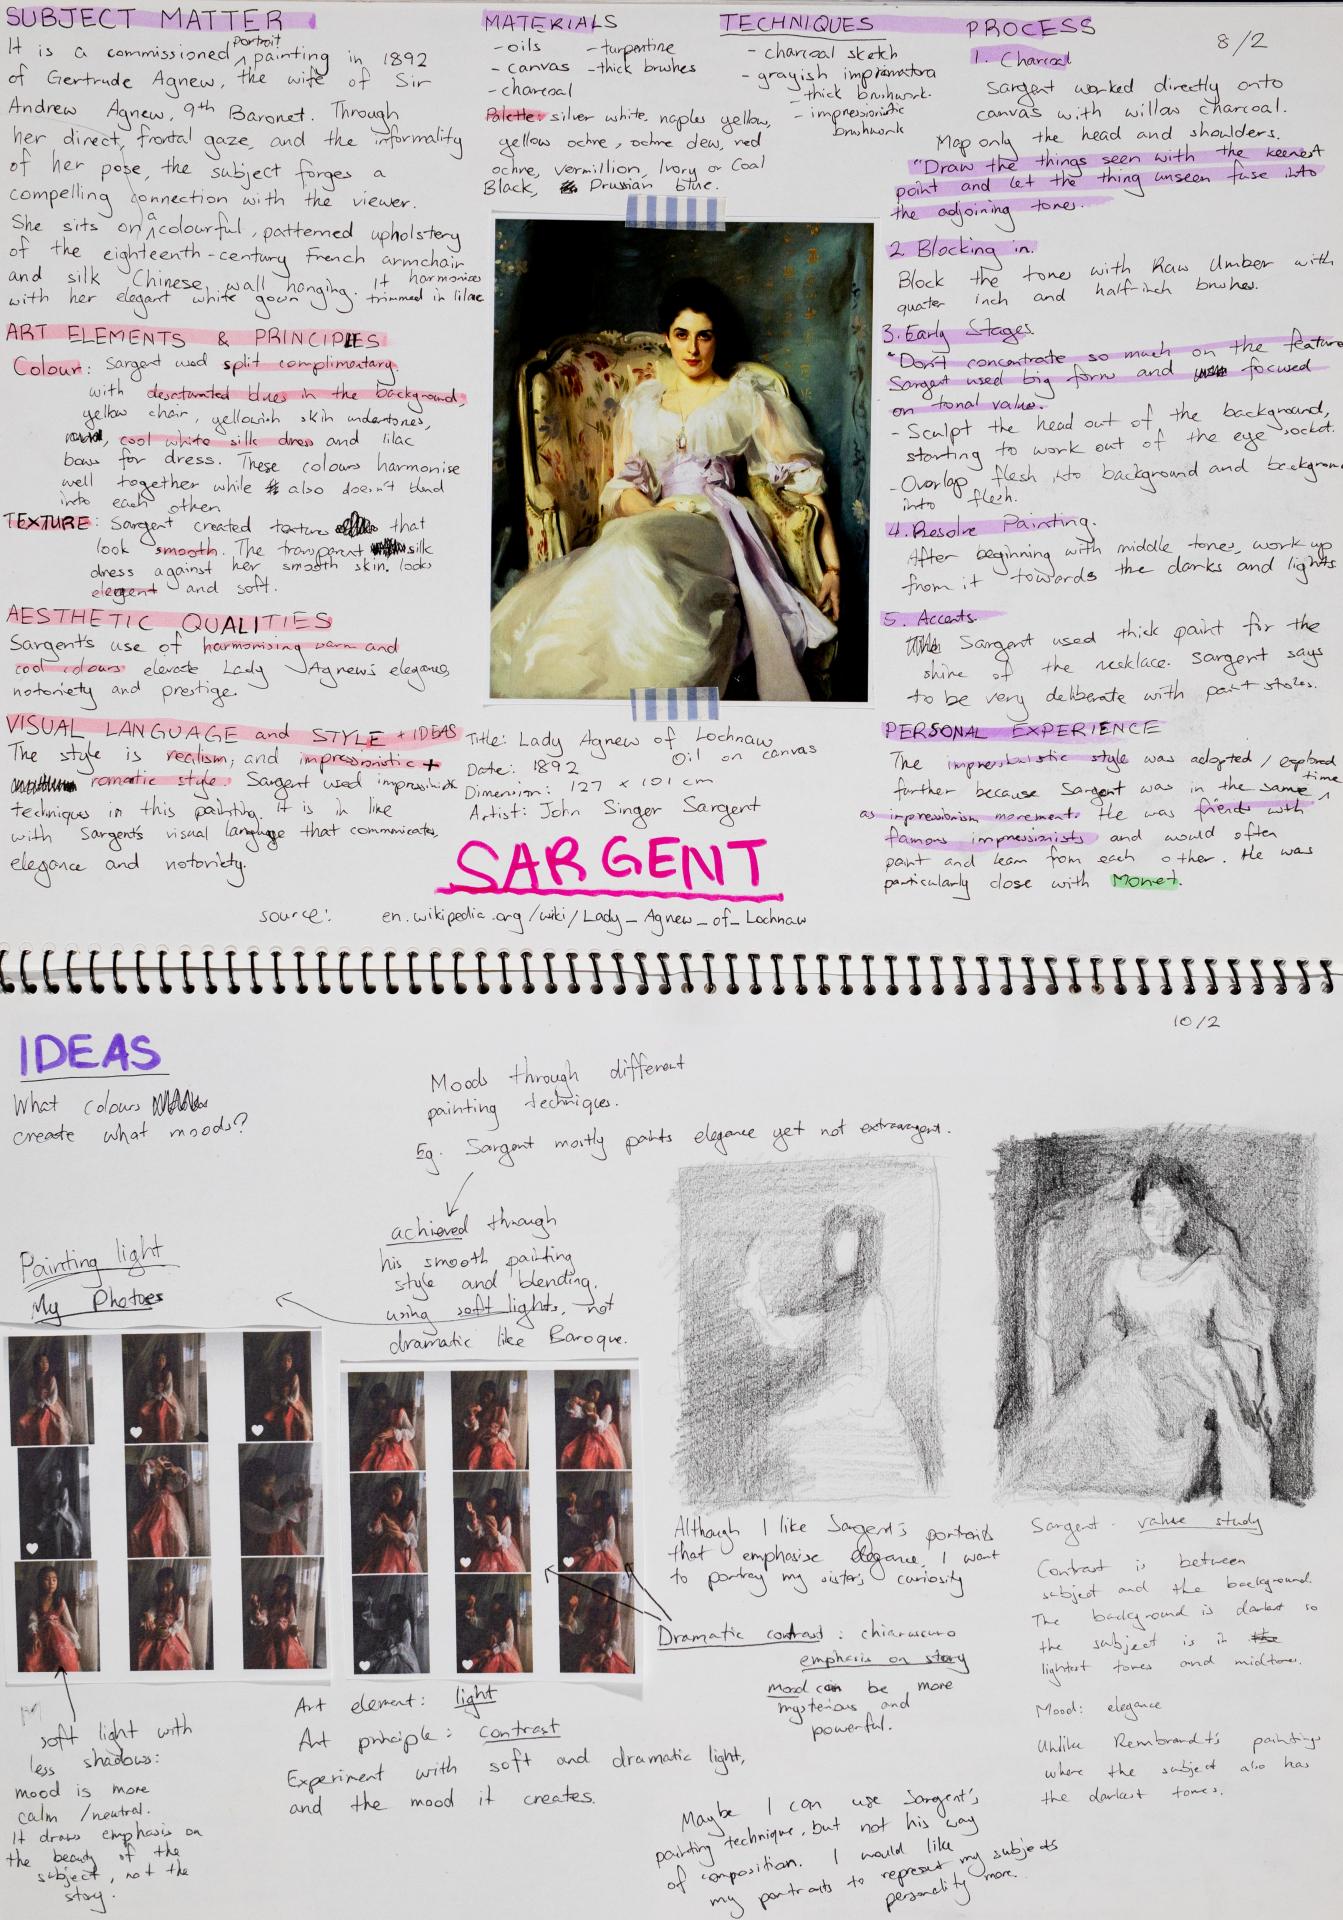 8/2
SUBJECT MATTER
It is a commissioned portrait painting in 1892
of Gertrude Agnew, the wife of Sir
Andrew Agnew, 9th Baronet. Through
her direct, frontal gaze, and the informality
of her pose, the subject forges a
compelling connection with the viewer.
She sits on a colourful, patterned upholstery
of the eighteenth-century French armchair
and silk Chinese wall hanging. It harmonises
with her elegant white gown trimmed in lilac
ART ELEMENTS & PRINCIPLES
Colour: Sargent used split complimentary
with desaturated blues in the background,
yellow chair, yellowish skin undertones,
cool white silk dress and lilac
bows for dress. These colours harmonise
well together while also doesn't blend
into each other.
TEXTURE: Sargent created texture that
look smooth. The transparent silk
dress against her smooth skin looks
elegent and soft.
AESTHETIC QUALITIES
Sargent's use of harmonising warm and
cool colours elevate Lady Agnew's elegance,
notoriety and prestige.
VISUAL LANGUAGE and STYLE + IDEAS
The style is realism, and impressionistic +
romatic style. Sargent used impressionistic
techniques in this painting. It is in like
with Sargent's visual language that communicates
elegance and notoriety.
MATERIALS
- oils - turpentine
- canvas - thick brushes
- charcoal
Palette: silver white, naples yellow,
yellow ochre, ochre dew, red
ochre, vermillion, Ivory or Coal
Black, Prussian blue.
TECHNIQUES
- charcoal sketch
- grayish imprimatora
- thick brushwork.
- impressionistic
brushwork
Title: Lady Agnew of Lochnaw
Oil on canvas
Date: 1892
Dimension: 127 x 101 cm
Artist: John Singer Sargent
SARGENT
source: en.wikipedia.org/wiki/Lady_Agnew_of_Lochnaw
PROCESS
1. Charcoal
Sargent worked directly onto
canvas with willow charcoal.
Map only the head and shoulders.
"Draw the things seen with the keenest
point and let the thing unseen fuse into
the adjoining tones.
2 Blocking in.
Block the tones with Raw Umber with
quater inch and half-inch brushes.
3. Early Stages
"Don't concentrate so much on the feature
Sargent used big form and focused
on tonal value.
- Sculpt the head out of the background,
starting to work out of the eye socket.
- Overlap flesh into background and background
into flesh.
4. Resolve Painting.
After beginning with middle tones, work up
from it towards the darks and lights
5. Accents.
Sargent used thick paint for the
shine of the necklace. Sargent says
to be very deliberate with paint stroles.
PERSONAL EXPERIENCE
The impressionistic style was adopted / explored
further because Sargent was in the same time
as impressionism movement. He was friends with
famous impressionists and would often
paint and learn from each other. He was
particularly close with Monet.
10/2
IDEAS
What colours
create what moods?
Moods through different
painting techniques.
Eg. Sargent mostly paints elegance yet not extravagent.
achieved through
his smooth painting
style and blending.
using soft lights, not
dramatic like Baroque.
Painting light
My Photoes
soft light with
less shadows:
mood is more
calm / neutral.
It draws emphasis on
the beauty of the
subject, not the
story.
Art element: light
Art principle: contrast
Experiment with soft and dramatic light,
and the mood it creates.
Although I like Sargent's portraits
that emphasise elegance, I want
to portray my sister's curiosity
Dramatic contrast: chiaruscuro
emphasis on story
mood can be more
mysterious and
powerful.
Maybe I can use Sargent's
painting technique, but not his way
of composition. I would like
my portraits to represent my subjects
personality more.
Sargent - value study
Contrast is between
subject and the background.
The background is darkest so
the subject is in
lightest tones and midtones.
Mood: elegance
Unlike Rembrandt's paintings
where the subject also has
the darkest tones.